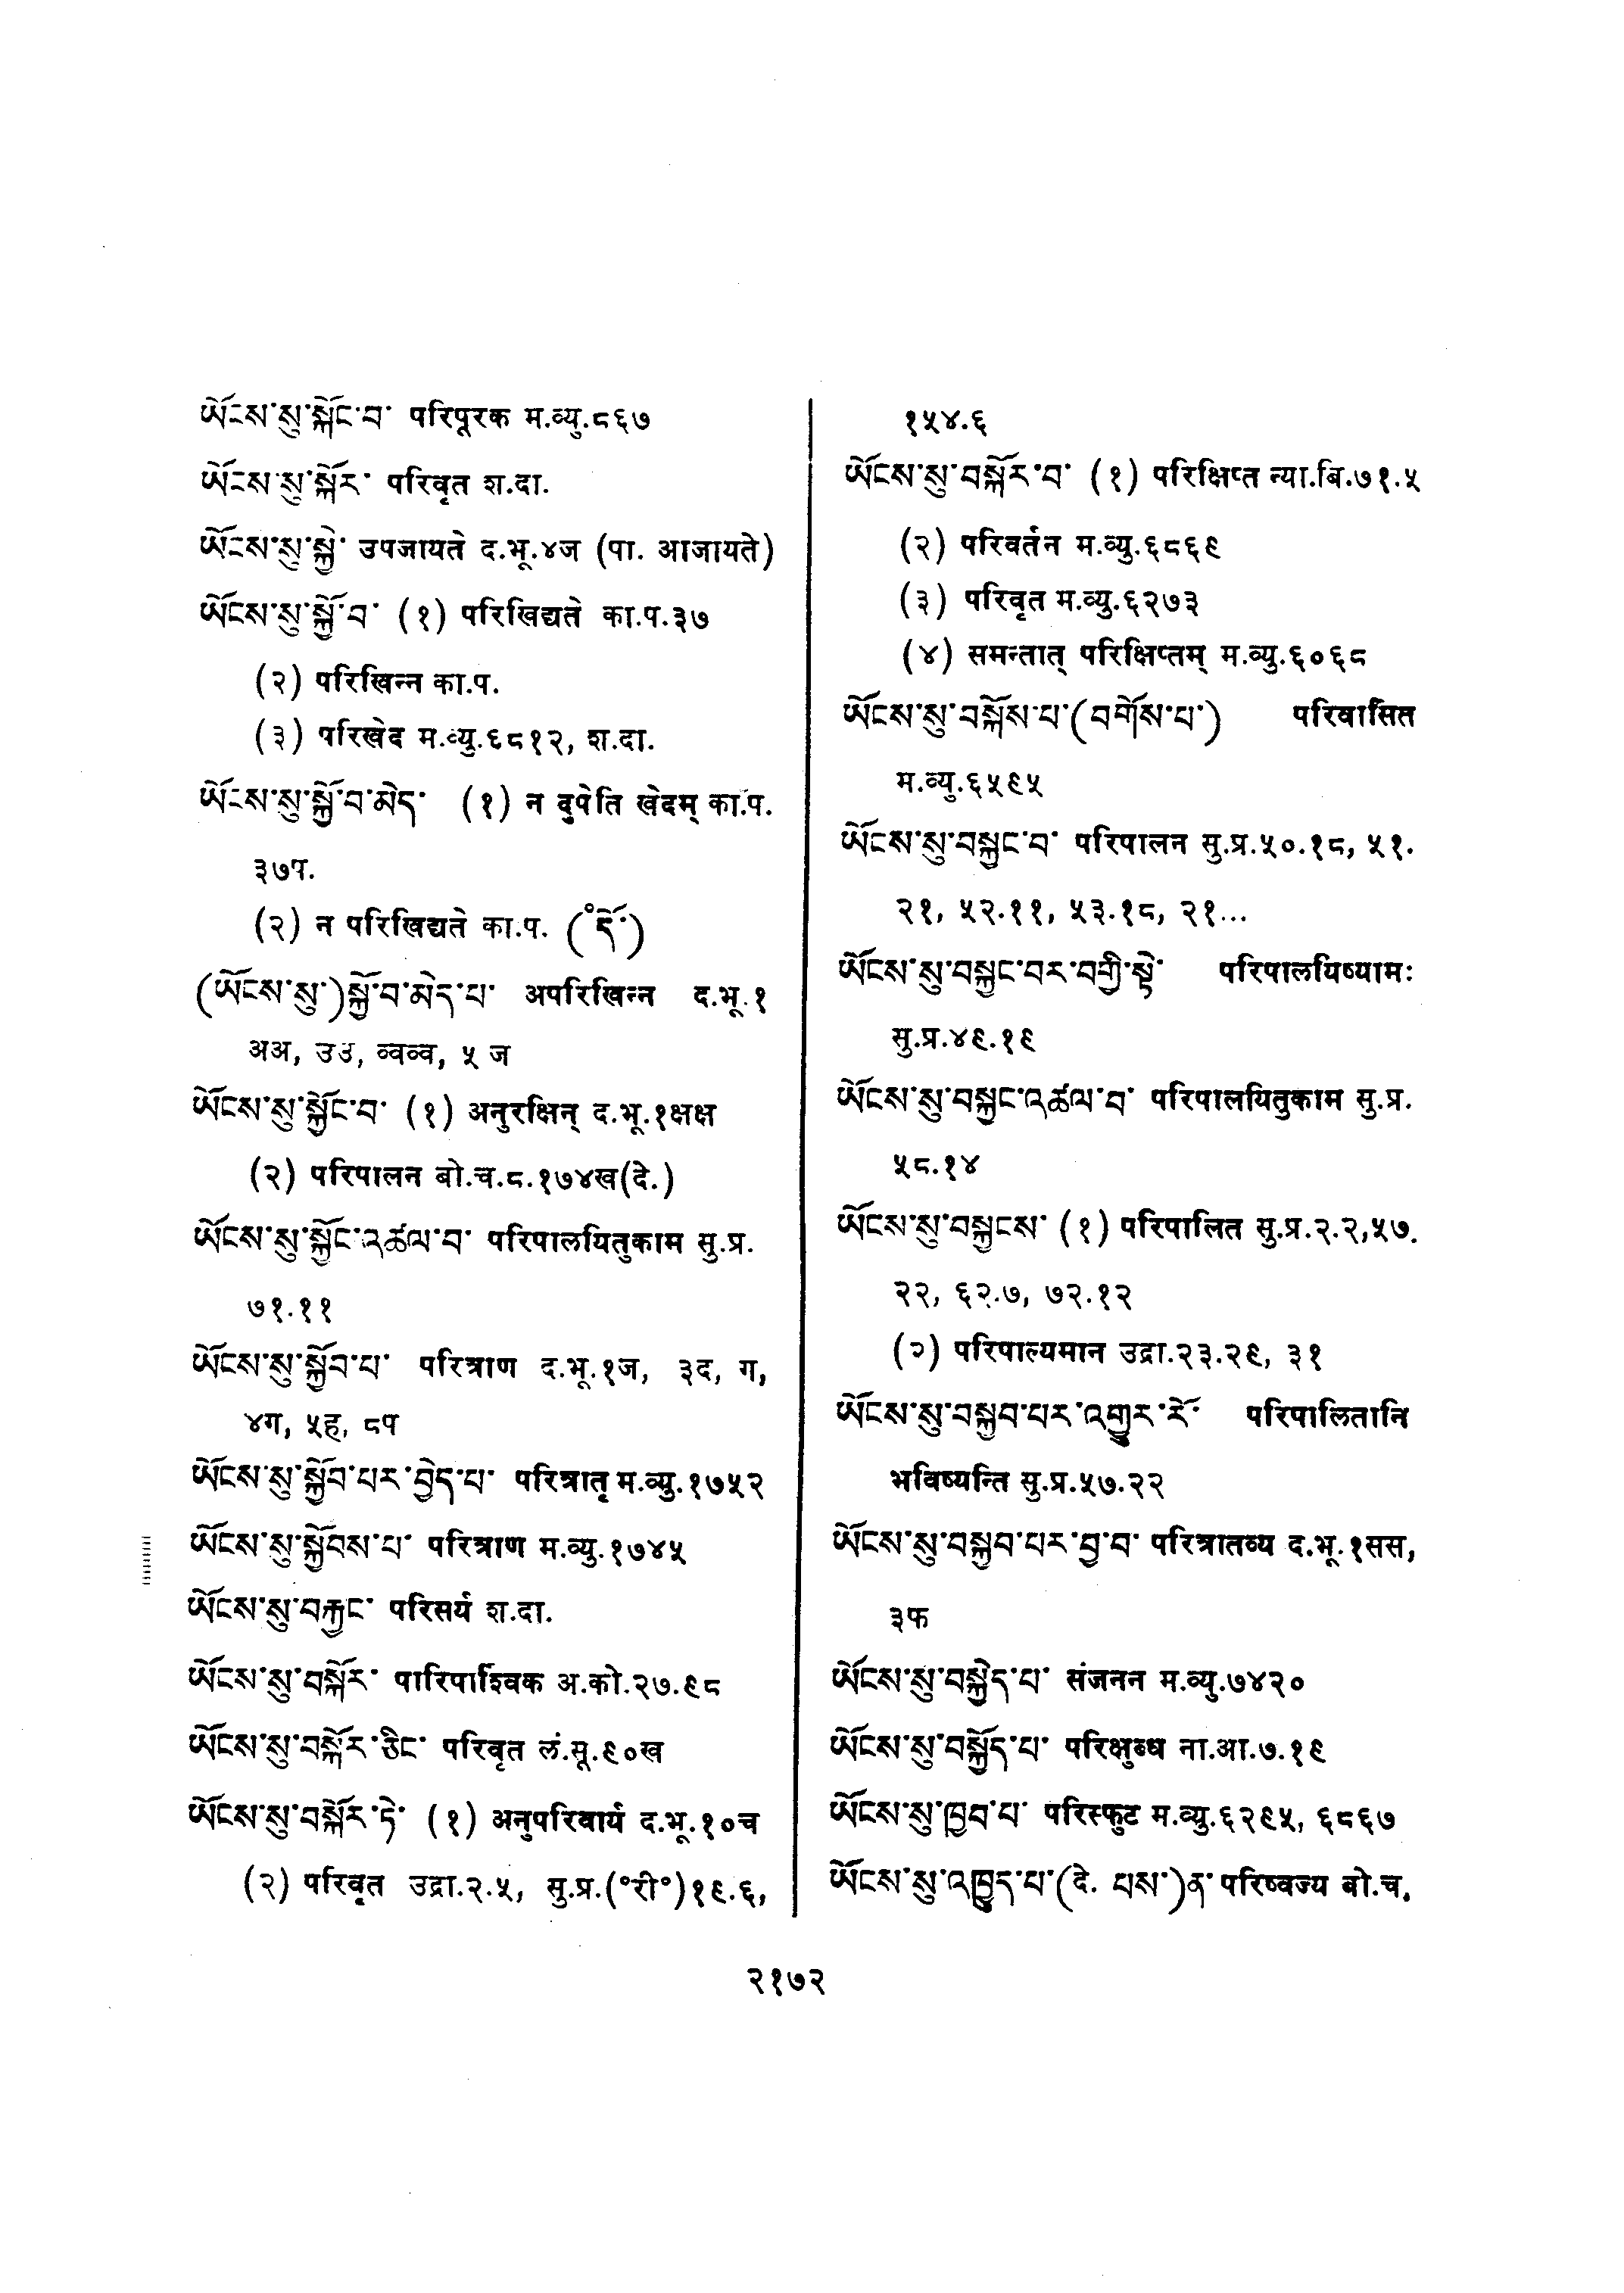 ཡོངས་སུ་སྐོང་བ་ परिपूरक म.व्यु.८६७
ཡོངས་སུ་སྐོར་ परिवृत श.दा.
ཡོངས་སུ་སྐྱེ་ उपजायते द.भू.४ज (पा. आजायते)
ཡོངས་སུ་སྐྱོ་བ་ (१) परिखिद्यते का.प.३७
(२) परिखिन्न का.प.
(३) परिखेद म.व्यु.६८१२, श.दा.
ཡོངས་སུ་སྐྱོ་བ་མེད་ (१) न दुपेति खेदम् का.प.
३७प.
(२) न परिखिद्यते का.प. (°དོ་)
(ཡོངས་སུ་)སྐྱོ་བ་མེད་པ་ अपरिखिन्न द.भू.१
अअ, उउ, व्वव्व, ५ ज
ཡོངས་སུ་སྐྱོང་བ་ (१) अनुरक्षिन् द.भू.१क्षक्ष
(२) परिपालन बो.च.८.१७४ख(दे.)
ཡོངས་སུ་སྐྱོང་འཚལ་བ་ परिपालयितुकाम सु.प्र.
७१.११
ཡོངས་སུ་སྐྱོབ་པ་ परित्राण द.भू.१ज, ३द, ग,
४ग, ५ह, ८प
ཡོངས་སུ་སྐྱོབ་པར་བྱེད་པ་ परित्रातृ म.व्यु.१७५२
ཡོངས་སུ་སྐྱོབས་པ་ परित्राण म.व्यु.१७४५
ཡོངས་སུ་བརྐྱང་ परिसर्य श.दा.
ཡོངས་སུ་བསྐོར་ पारिपार्श्विक अ.को.२७.९८
ཡོངས་སུ་བསྐོར་ཅིང་ परिवृत लं.सू.९०ख
ཡོངས་སུ་བསྐོར་ཏེ་ (१) अनुपरिवार्य द.भू.१०च
(२) परिवृत उद्रा.२.५, सु.प्र.(°री°)१९.६,
१५४.६
ཡོངས་སུ་བསྐོར་བ་ (१) परिक्षिप्त न्या.बि.७१.५
(२) परिवर्तन म.व्यु.६८६९
(३) परिवृत म.व्यु.६२७३
(४) समन्तात् परिक्षिप्तम् म.व्यु.६०६८
ཡོངས་སུ་བསྐོས་པ་(བགོས་པ་) परिवासित
म.व्यु.६५९५
ཡོངས་སུ་བསྐྱང་བ་ परिपालन सु.प्र.५०.१८, ५१.
२१, ५२.११, ५३.१८, २१...
ཡོངས་སུ་བསྐྱང་བར་བགྱི་སྟེ་ परिपालयिष्यामः
सु.प्र.४९.१९
ཡོངས་སུ་བསྐྱང་འཚལ་བ་ परिपालयितुकाम सु.प्र.
५८.१४
ཡོངས་སུ་བསྐྱངས་ (१) परिपालित सु.प्र.२.२,५७.
२२, ६२.७, ७२.१२
(२) परिपाल्यमान उद्रा.२३.२९, ३१
ཡོངས་སུ་བསྐྱབ་པར་འགྱུར་རོ་ परिपालितानि
भविष्यन्ति सु.प्र.५७.२२
ཡོངས་སུ་བསྐྱབ་པར་བྱ་བ་ परित्रातव्य द.भू.१सस,
३फ
ཡོངས་སུ་བསྐྱེད་པ་ संजनन म.व्यु.७४२०
ཡོངས་སུ་བསྐྱོད་པ་ परिक्षुब्ध ना.आ.७.१९
ཡོངས་སུ་ཁྱབ་པ་ परिस्फुट म.व्यु.६२९५, ६८६७
ཡོངས་སུ་འཁྱུད་པ་(दे. པས་)ན་ परिष्वज्य बो.च.
२१७२